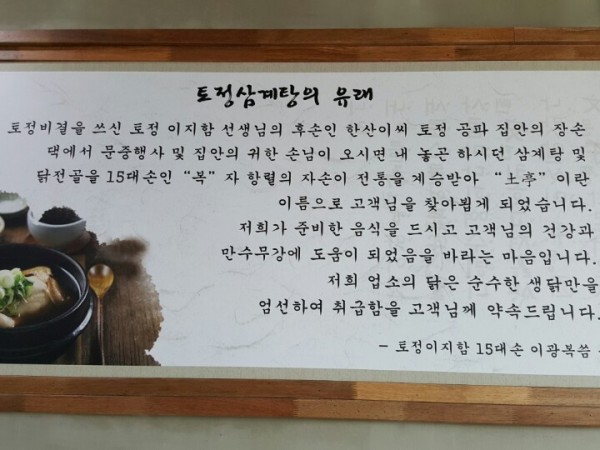 토정삼계탕의 유래
토정비결을 쓰신 토정 이지함 선생님의 후손인 한산이씨 토정 공파 집안의 장손
댁에서 문중행사 및 집안의 귀한 손님이 오시면 내 놓곤 하시던 삼계탕 및
닭전골을 15대손인 “복” 자 항렬의 자손이 전통을 계승받아 “土亭” 이란
이름으로 고객님을 찾아뵙게 되었습니다.
저희가 준비한 음식을 드시고 고객님의 건강과
만수무강에 도움이 되었음을 바라는 마음입니다.
저희 업소의 닭은 순수한 생닭만을
엄선하여 취급함을 고객님께 약속드립니다.
- 토정이지함 15대손 이광복씀 -